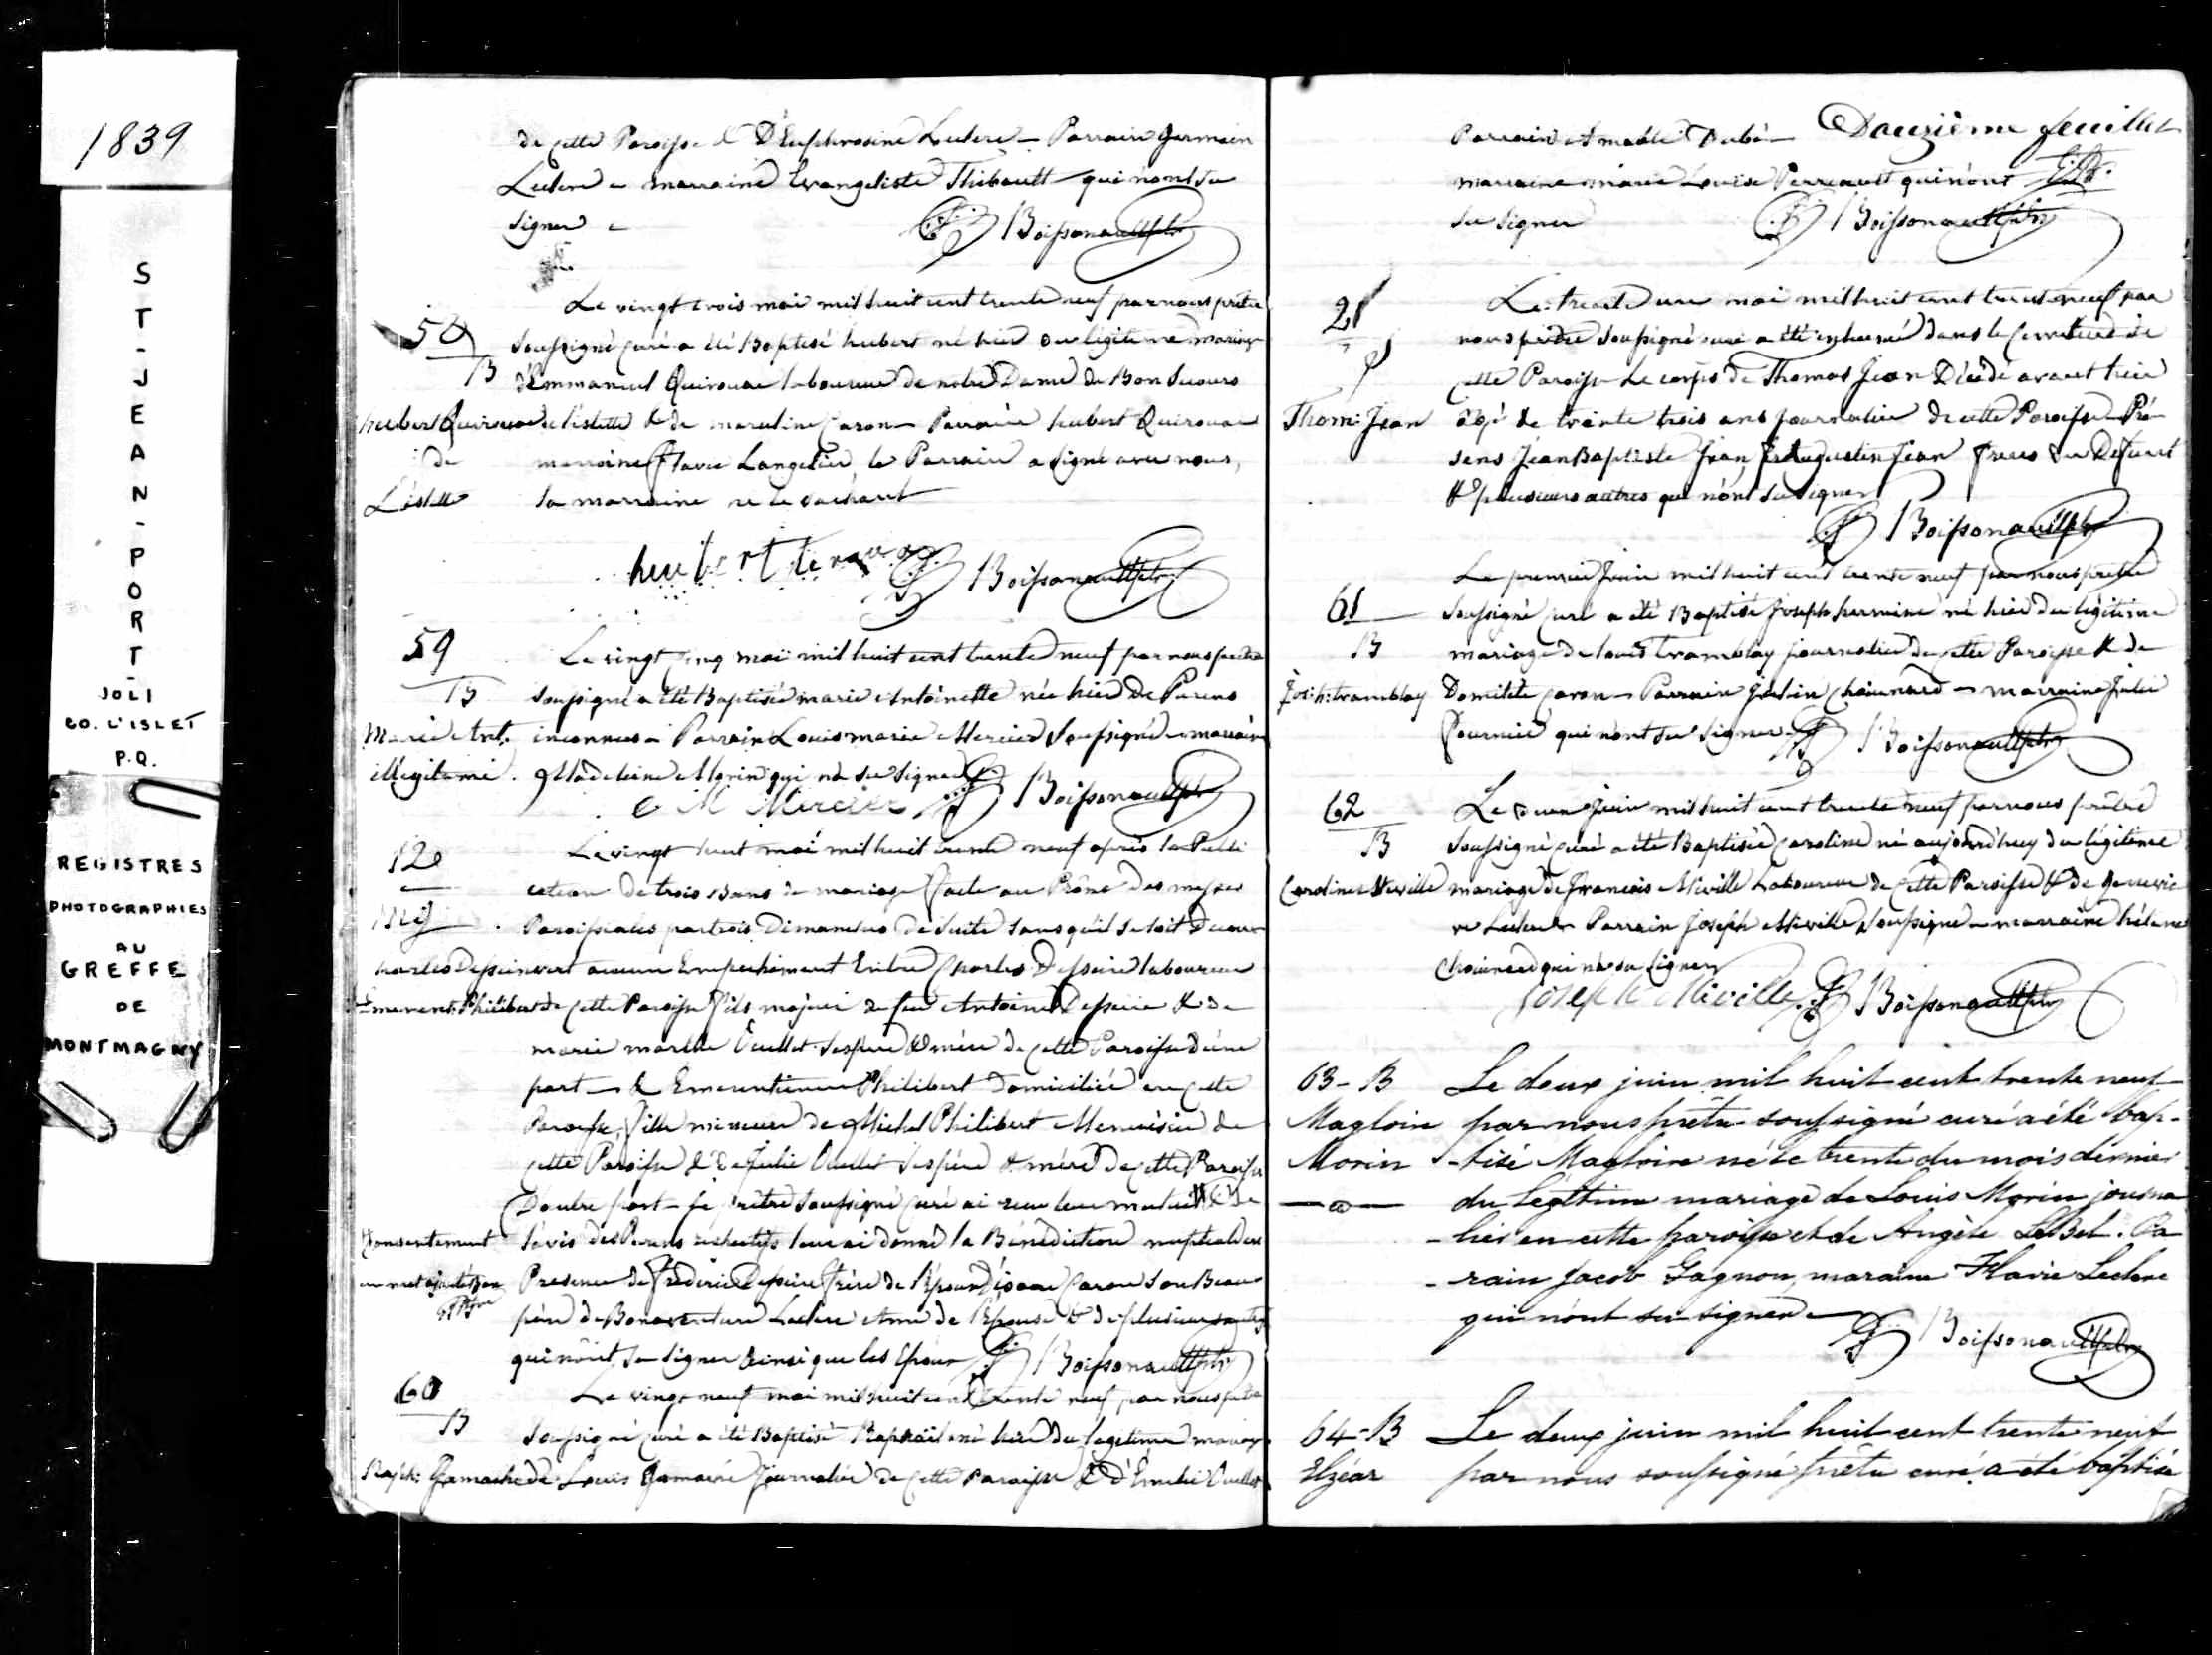 1839
ST-JEAN-PORT-
JOLI
CO. L'ISLET
P.Q.
REGISTRES
PHOTOGRAPHIES
AU
GREFFE
DE
MONTMAGNY
de cette Paroisse & D'Euphrosine Leclerc - Parrain Germain
Leclerc - marraine Evangeliste Thibault qui n'ont su
signer -
Boissonnault ptre
Le vingt trois mai mil huit cent trente neuf par nous prêtre
soussigné curé a été Baptisé hubert né hier du légitime mariage
B
d'Emmanuel Quirouac laboureur de notre Dame de Bon Secours
hubert Quirouac de l'islette & de marceline Caron - Parrain hubert Quirouac
de
marraine Flavie Langelier, le Parrain a signé avec nous,
L'islette
la marraine ne le sachant
hubert
Boissonnault ptre
59
Le vingt cinq mai mil huit cent trente neuf par nous prêtre
B
soussigné a été Baptisée marie Antoinette née hier De Parens
Marie Ant.
inconnus - Parrain Louis marie Mercier soussigné - marraine
illégitime.
Madeleine Morin qui n'a su signer
M Mercier
Boissonnault ptre
12e
Le vingt huit mai mil huit trente neuf après la Publi
cation de trois Bans de mariage faite au Prône Des messes
Mg
Paroissiales par trois Dimanches de suite sans qu'il se soit Decou-
vert aucun Empechement Entre Charles Dessein laboureur
de cette Paroisse fils majeur de feu Antoine Dessein & De
marie marthe Ouellet ses père & mère de cette Paroisse d'une
part - & Emerentienne Philibert Domiciliée en cette
Paroisse, fille mineure de Michel Philibert Menuisier de
cette Paroisse & De Julie Ouellet ses père & mère De cette Paroisse
D'autre part - Je prêtre soussigné curé ai reçu leur mutuel
consentement
l'avis des Parens respectifs leur ai donné la Bénédiction nuptiale en
Presence de Frederic Dessein frère de l'Epoux D'isaac Caron son Beau-
père de Bonaventure Leclerc Ami de l'Epouse & de plusieurs autres
qui n'ont su signer ainsi que les Epoux
Boissonnault ptre
60
Le vingt neuf mai mil huit cent trente neuf par nous prêtre
B
soussigné curé a été Baptisé Raphaël né hier Du légitime mariage
Raph: Gamache
de Louis Gamache Journalier de cette Paroisse & d'Emelie Ouellet
Parrain Amable Dubé -
Douzième feuillet
marraine marie Louise Perreault qui n'ont
su signer
Boissonnault ptre
Le trente un mai mil huit cent trente neuf par
nous prêtre soussigné curé a été inhumé dans le Cemetiere de
cette Paroisse Le corps de Thomas Jean Décédé avant hier
Thom: Jean
âgé de trente trois ans journalier de cette Paroisse - Pré-
sens Jean Baptiste Jean & Augustin Jean freres du Defunt
& plusieurs autres qui n'ont su signer
Boissonnault ptre
Le premier Juin mil huit cent trente neuf par nous prêtre
61
soussigné curé a été Baptisé Joseph né hier du légitime
B
mariage de Louis Tramblay journalier de cette Paroisse & de
Jos: h: tramblay
Domitile Caron - Parrain Julin Chouinard - marraine Julie
Fournier qui n'ont su signer
Boissonnault ptre
62
Le Deux Juin mil huit cent trente neuf par nous prêtre
B
soussigné curé a été Baptisée Caroline né aujourd'huy du légitime
Caroline Miville
mariage de francois Miville Laboureur de cette Paroisse & de Genevie
ve Leclerc - Parrain Joseph Miville soussigné - marraine héléne
Chouinard qui n'a su signer
Joseph Miville
Boissonnault ptre
63 - B
Le deux juin mil huit cent trente neuf
Magloire
par nous prêtre soussigné curé a été bap-
Morin
-tisé Magloire né le trente du mois dernier
du légitime mariage de Louis Morin journa
-lier en cette paroisse et de Angèle LeBel. Pa
-rain Jacob Gagnon, maraine Flavie Leclerc
qui n'ont su signer -
Boissonnault ptre
64 - B
Le deux juin mil huit cent trente neuf
Elzéar
par nous soussigné prêtre curé a été baptisé